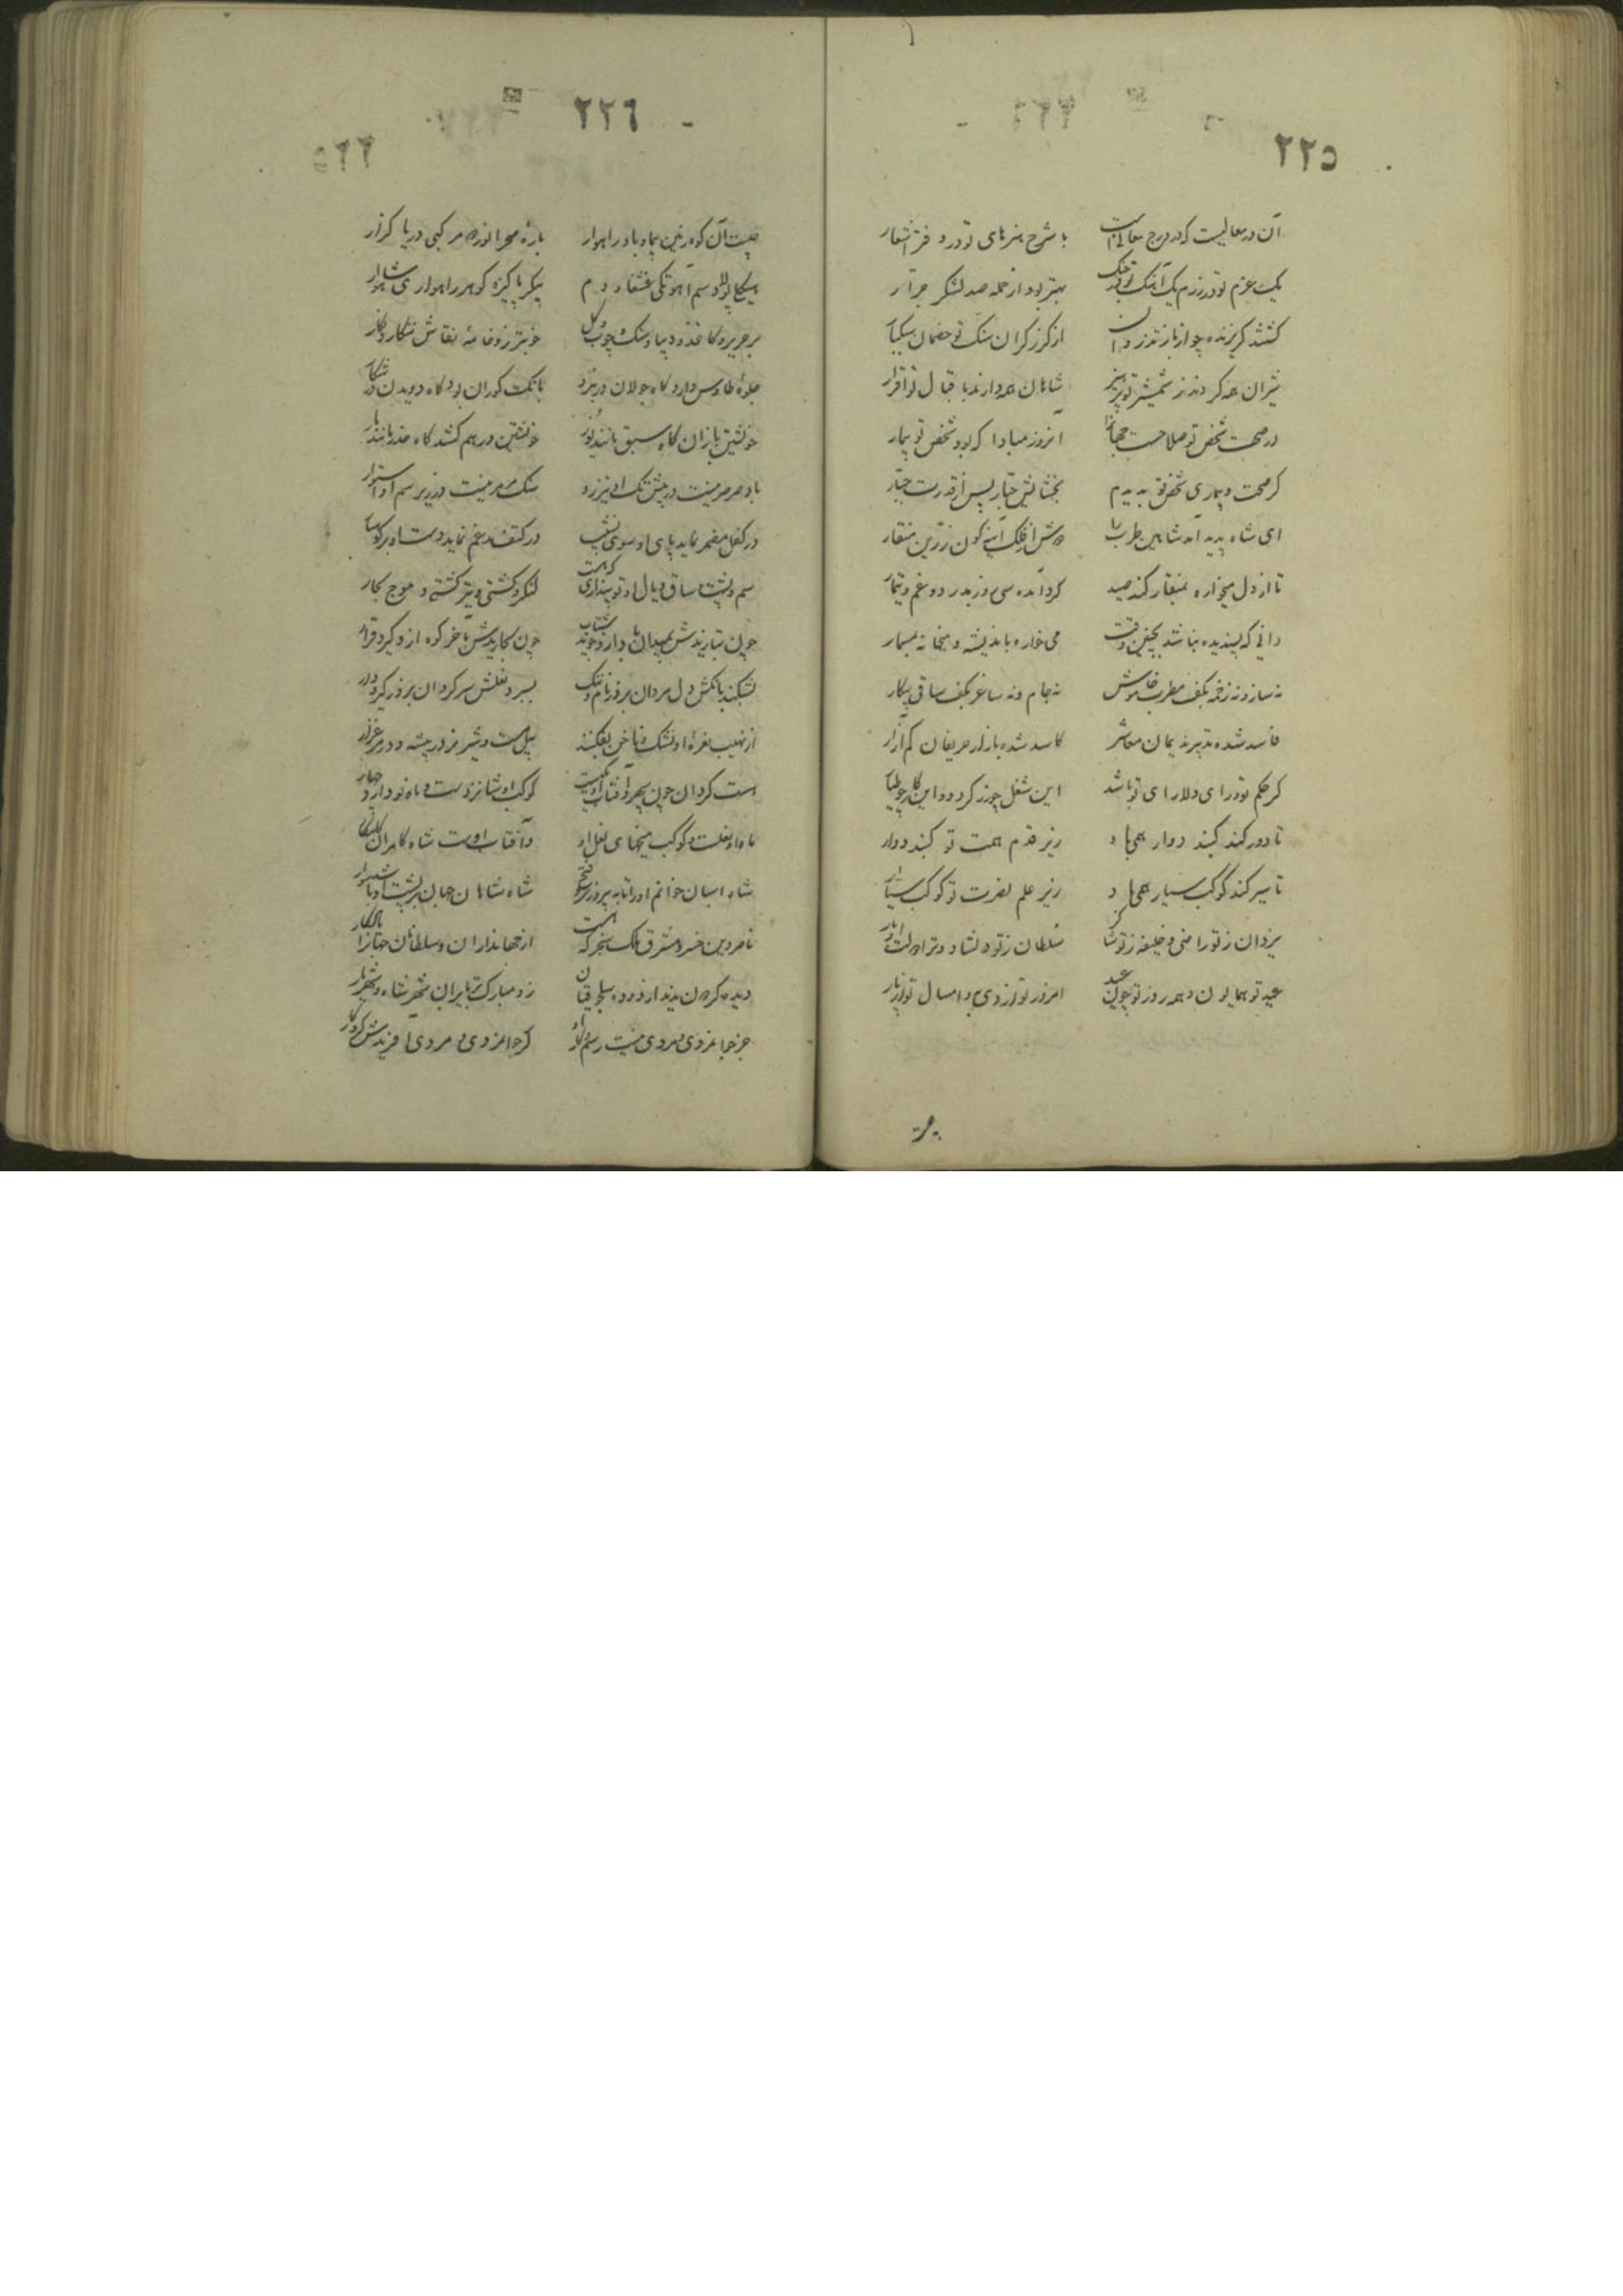 ٢٢٥
آن در معالیست که در درج معالیست
با شرح هنرهای تو در دفتر اشعار
یک عزم تو در رزم یک آهنگ تو در جنگ
بهتر بود از حمله صد لشکر جرار
گشتند گریزنده چو از باز تذروان
از گرز گران سنگ تو خصمان
شیران همه کردند ز شمشیر تو پرهیز
شاهان همه دارند باقبال تو اقرار
در صحت شخص تو صلاحست جهانرا
آنروز مبادا که بود شخص تو بیمار
کر صحت و بیماری شخص تو بدیدم
بخشایش جبار پس از قدرت جبار
ای شاه پدید آمد شاهین طرب را
از فلک آینه کون زرین منقار
تا از دل میخواره بمنقار کند صید
کرد آمده سی روز بدر دو غم و تیمار
دانی که پسندیده نباشد بچنین وقت
می خواره باندیشه و میخانه بمسمار
نه ساز و نه زخمه بکف مطرب خاموش
نه جام و نه ساغر بکف ساقی بیکار
فاسد شده تدبیر ندیمان معاشر
کاسد شده بازار حریفان کم آزار
کر حکم تو و رای دلارای تو باشد
این شغل چو زر کردد و این کار چو طیار
تا دور کند کنبد دوار همی باد
زیر قدم همت تو کنبد دوار
تا سیر کند کوکب سیار همی باد
زیر علم نصرت تو کوکب سیار
یزدان ز تو راضی و خلیفه ز تو شاکر
سلطان ز تو دلشاد و ترا دولت
عید تو همایون و همه روز تو چون عید
امروز تو از دی به و امسال تو از پار
٢٢٦
چیست آن کوه زمین پیما و باد راهوار
بارهٔ صحرا نورد و مرکبی دریا گذار
سم آهو تکی
پیکر پاکیزه کوهر راهواری شاهوار
بر حریر و کاغذ و دیبا و سنک و چوب و کل
خوبتر زو خامهٔ نقاش ننکارد نکار
جلوهٔ طاوس دارد کاه جولان در نبرد
بانک کوران بود کاه دویدن در شکار
خویشتن یازان کاه سبق مانند یوز
خویشتن درهم کشد کاه حذر مانند مار
باد صرصر نیست در پیش تک او تیزرو
سنک مرمر نیست در زیر سم او استوار
در کفل مضمر نماید پای او سوی نشیب
در کتف مدغم نماید دست او بر کوهسار
سم و پشت و ساق و یال او تو پنداری که هست
لنکر و کشتی و تیر کشتی و موج بحار
چون بتازندش بمیدان باد ازو جوید شتاب
چون بجا دارندش بآخر کوه ازو کیرد قرار
بشکند بانکش دل مردان بروز نام و ننک
بسپرد نعلش سر کردان بروز کیر و دار
از نهیب نعرهٔ او نشک و ناخن بفکنند
پیل مست و شیر نر در بیشه و در مرغزار
هست کردان چون سپهر و آفتاب او یکیست
کوکب او شانزدست و ماه نو دارد چهار
ماه او نعلست و کوکب میخهای نعل او
و آفتاب اوست شاه کامران کامکار
شاه اسبان خوانم او را تا به پیروزی و فتح
شاه شاهان جهان بر پشت او باشد سوار
ناصر دین خسرو مشرق ملک سنجر که هست
از جهانداران و سلطانان جهانرا یادکار
دیده کردون ندیدار دودهٔ سلجوقیان
زو مبارکتر بایران شهر شاه و شهریار
جز جوانمردی و مردی نیست رسم و کار او
کز جوانمردی و مردی آفریدش کردکار